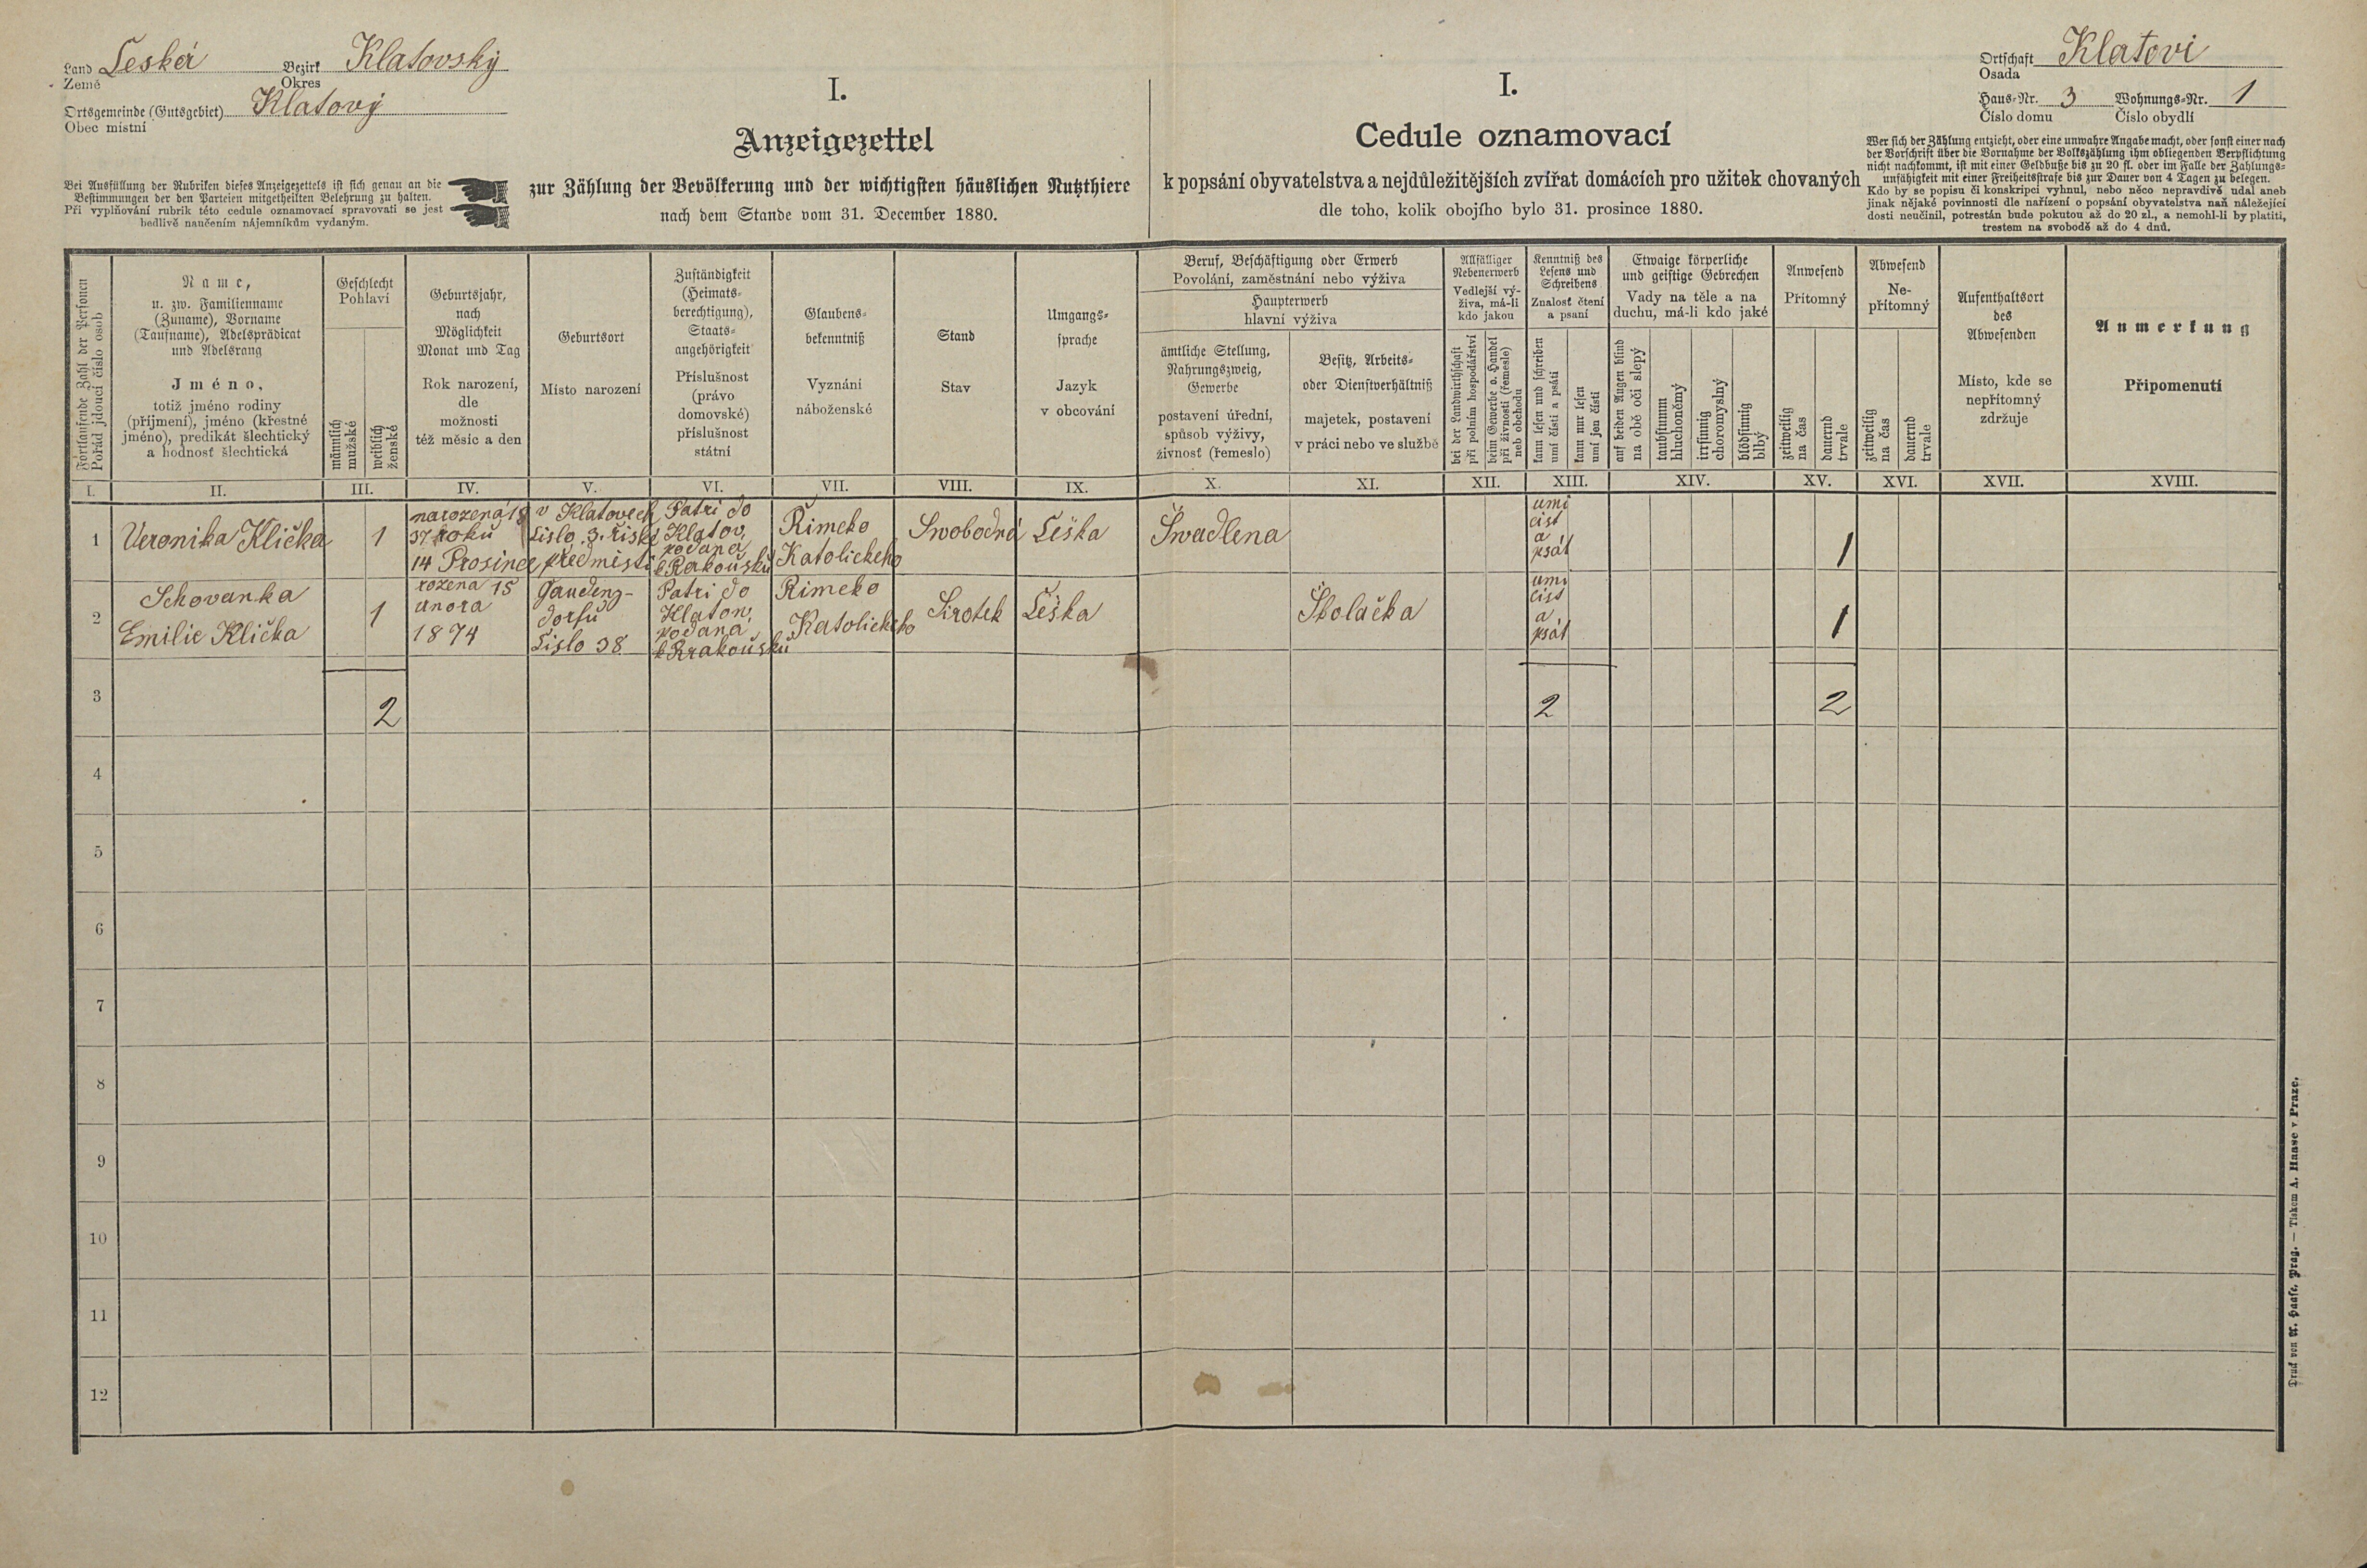 Land Česká Bezirk Klatovský
Země Okres
Ortsgemeinde (Gutsgebiet) Klatový
Obec místní
Bei Ausfüllung der Rubriken dieses Anzeigezettels ist sich genau an die
Bestimmungen der den Parteien mitgetheilten Belehrung zu halten.
Při vyplňování rubrik této cedule oznamovací spravovati se jest
bedlivě naučením nájemníkům vydaným.
I.
Anzeigezettel
zur Zählung der Bevölkerung und der wichtigsten häuslichen Nutzthiere
nach dem Stande vom 31. December 1880.
I.
Cedule oznamovací
k popsání obyvatelstva a nejdůležitějších zvířat domácích pro užitek chovaných
dle toho, kolik obojího bylo 31. prosince 1880.
Ortschaft Klatovi
Osada
Haus-Nr. 3 Wohnungs-Nr. 1
Číslo domu Číslo obydlí
Wer sich der Zählung entzieht, oder eine unwahre Angabe macht, oder sonst einer nach
der Vorschrift über die Vornahme der Volkszählung ihm obliegenden Verpflichtung
nicht nachkommt, ist mit einer Geldbuße bis zu 20 fl. oder im Falle der Zahlungs-
unfähigkeit mit einer Freiheitsstrafe bis zur Dauer von 4 Tagen zu belegen.
Kdo by se popisu či konskripci vyhnul, nebo něco nepravdivě udal aneb
jinak nějaké povinnosti dle nařízení o popsání obyvatelstva naň náležející
dosti neučinil, potrestán bude pokutou až do 20 zl., a nemohl-li by platiti,
trestem na svobodě až do 4 dnů.
Fortlaufende Zahl der Personen
Pořád jdoucí číslo osob
Name,
u. zw. Familienname
(Zuname), Vorname
(Taufname), Adelsprädicat
und Adelsrang
Jméno,
totiž jméno rodiny
(příjmení), jméno (křestné
jméno), predikát šlechtický
a hodnosť šlechtická
Geschlecht
Pohlaví
männlich
mužské
weiblich
ženské
Geburtsjahr,
nach
Möglichkeit
Monat und Tag
Rok narození,
dle
možnosti
též měsíc a den
Geburtsort
Místo narození
Zuständigkeit
(Heimats-
berechtigung),
Staats-
angehörigkeit
Příslušnost
(právo
domovské)
příslušnost
státní
Glaubens-
bekenntniß
Vyznání
náboženské
Stand
Stav
Umgangs-
sprache
Jazyk
v obcování
Beruf, Beschäftigung oder Erwerb
Povolání, zaměstnání nebo výživa
Haupterwerb
hlavní výživa
ämtliche Stellung,
Nahrungszweig,
Gewerbe
postavení úřední,
spůsob výživy,
živnosť (řemeslo)
Besitz, Arbeits-
oder Dienstverhältniß
majetek, postavení
v práci nebo ve službě
Allfälliger
Nebenerwerb
Vedlejší vý-
živa, má-li
kdo jakou
bei der Landwirthschaft
při polním hospodářství
beim Gewerbe o. Handel
při živnosti (řemesle)
neb obchodu
Kenntniß des
Lesens und
Schreibens
Znalosť čtení
a psaní
kann lesen und schreiben
umí čísti a psáti
kann nur lesen
umí jen čísti
Etwaige körperliche
und geistige Gebrechen
Vady na těle a na
duchu, má-li kdo jaké
auf beiden Augen blind
na obě oči slepý
taubstumm
hluchoněmý
irrsinnig
choromyslný
blödsinnig
blbý
Anwesend
Přítomný
zeitweilig
na čas
dauernd
trvale
Abwesend
Ne-
přítomný
zeitweilig
na čas
dauernd
trvale
Aufenthaltsort
des
Abwesenden
Místo, kde se
nepřítomný
zdržuje
Anmerkung
Připomenutí
I. II. III. IV. V. VI. VII. VIII. IX. X. XI. XII. XIII. XIV. XV. XVI. XVII. XVIII.
1
Veronika Klička
1
narozená 18
37 roku
14 Prosince
v Klatovech
Čislo 3. Řiske
předmisti
Patri do
Klatov,
podaná
k Rakousku
Řimsko
Katolickeho
Swobodná
Češka
Šwadlena
umi
cist
a
psát
1
2
Schovanka
Emilie Klička
1
rozena 15
unora
1874
Gaudenz-
dorfu
Čislo 38
Patri do
Klatow,
podaná
k Rrakousku
Rimsko
Katolickeho
Sirotek
Češka
Školačka
umi
cist
a
psát
1
3
2
2
2
4
5
6
7
8
9
10
11
12
Druck von A. Haase, Prag. — Tiskem A. Haase v Praze.